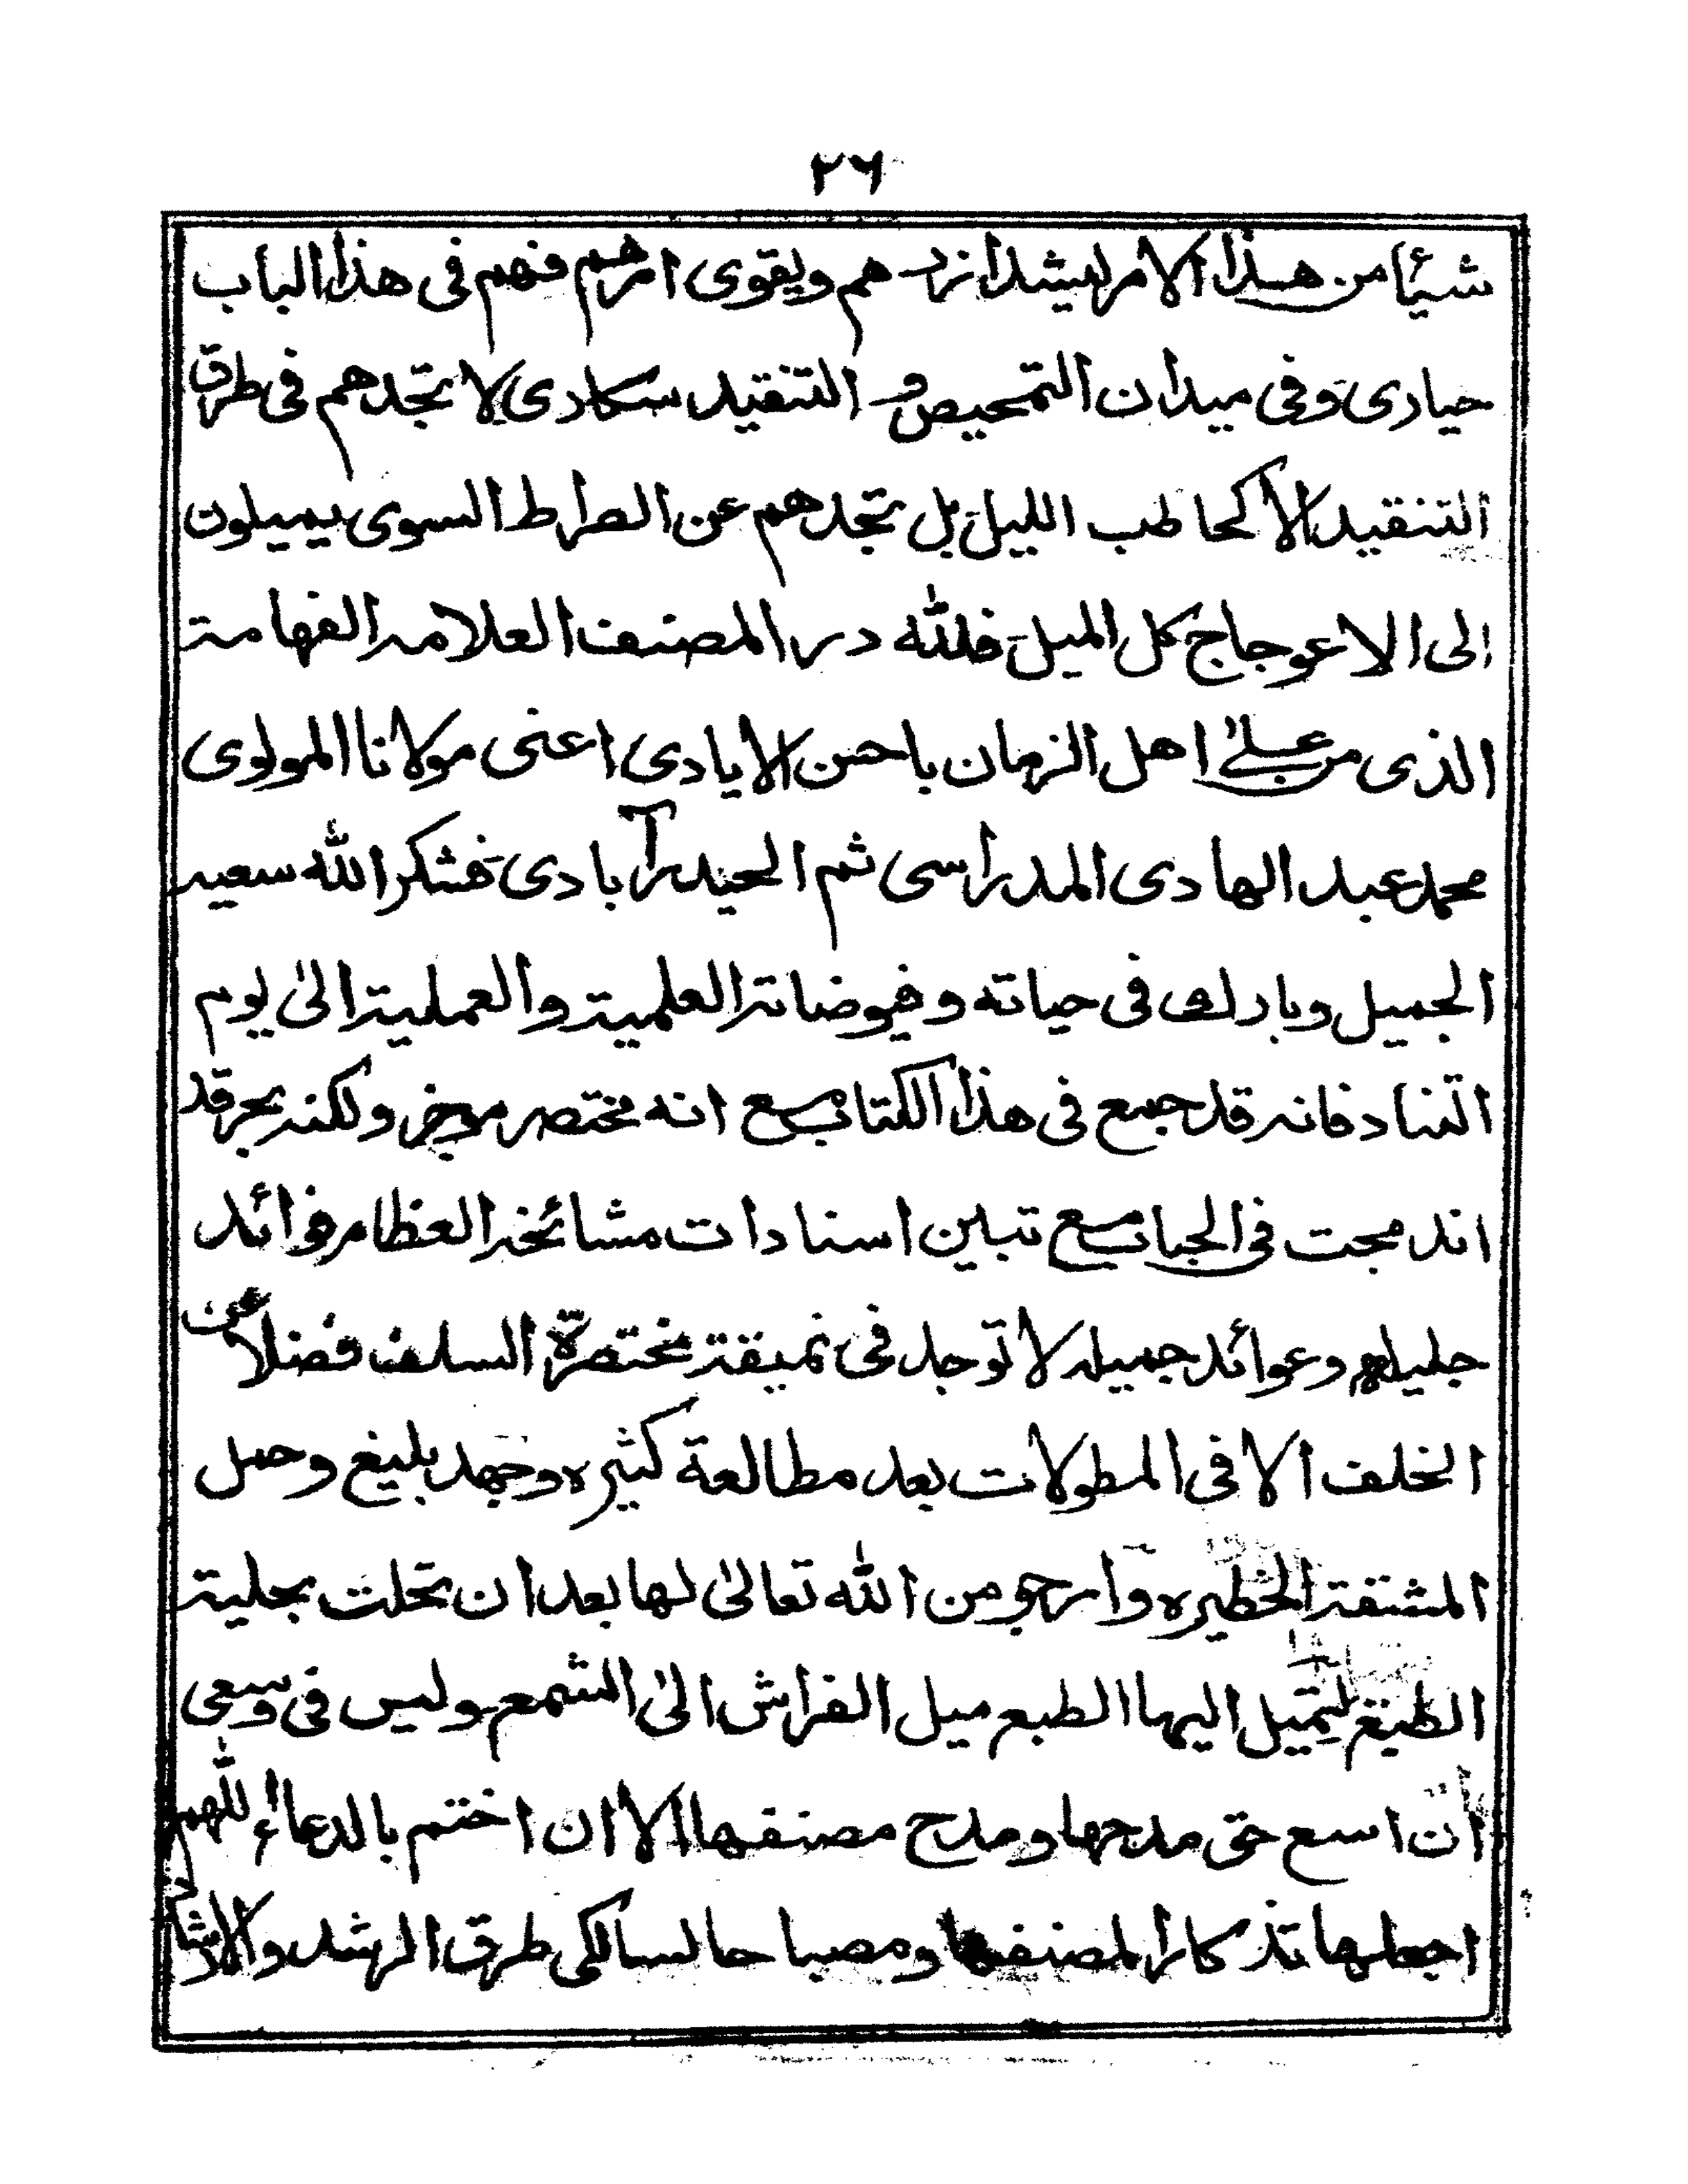 ٢٦
شيئا من هذا الامر ليشد ازرهم ويقوى امرهم فهم فى هذا الباب
حيارى وفى ميدان التمحيص و التنقيد سكارى لا تجدهم فى طرق
التنقيد الا كحاطب الليل بل تجدهم عن الصراط السوى يميلون
الى الاعوجاج كل الميل فلله در المصنف العلامه الفهامة
الذى من على اهل الزمان باحسن الايادى اعنى مولانا المولوى
محمد عبد الهادى المدراسى ثم الحيدرآبادى فشكر الله سعيه
الجميل وبارك فى حياته وفيوضاته العلمية والعملية الى يوم
التناد فانه قد جمع فى هذا الكتاب مع انه مختصر موجز ولكنه بحر قد
اندمجت فى الحباب مع تبين اسنادات مشائخه العظام فوائد
جليله وعوائد جميله لا توجد فى نميقة مختصرة السلف فضلا عن
الخلف الا فى المطولات بعد مطالعة كثيره وجهد بليغ وحمل
المشقة الخطيره وارجو من الله تعالى لها بعد ان تحلت بحلية
الطبع لتميل اليها الطبع ميل الفراش الى الشمع وليس فى وسعى
ان اسع حق مدحها ومدح مصنفها الا ان اختم بالدعاء اللهم
اجعلها تذكارا لمصنفها ومصباحا لسالكى طرق الرشد والارشاد